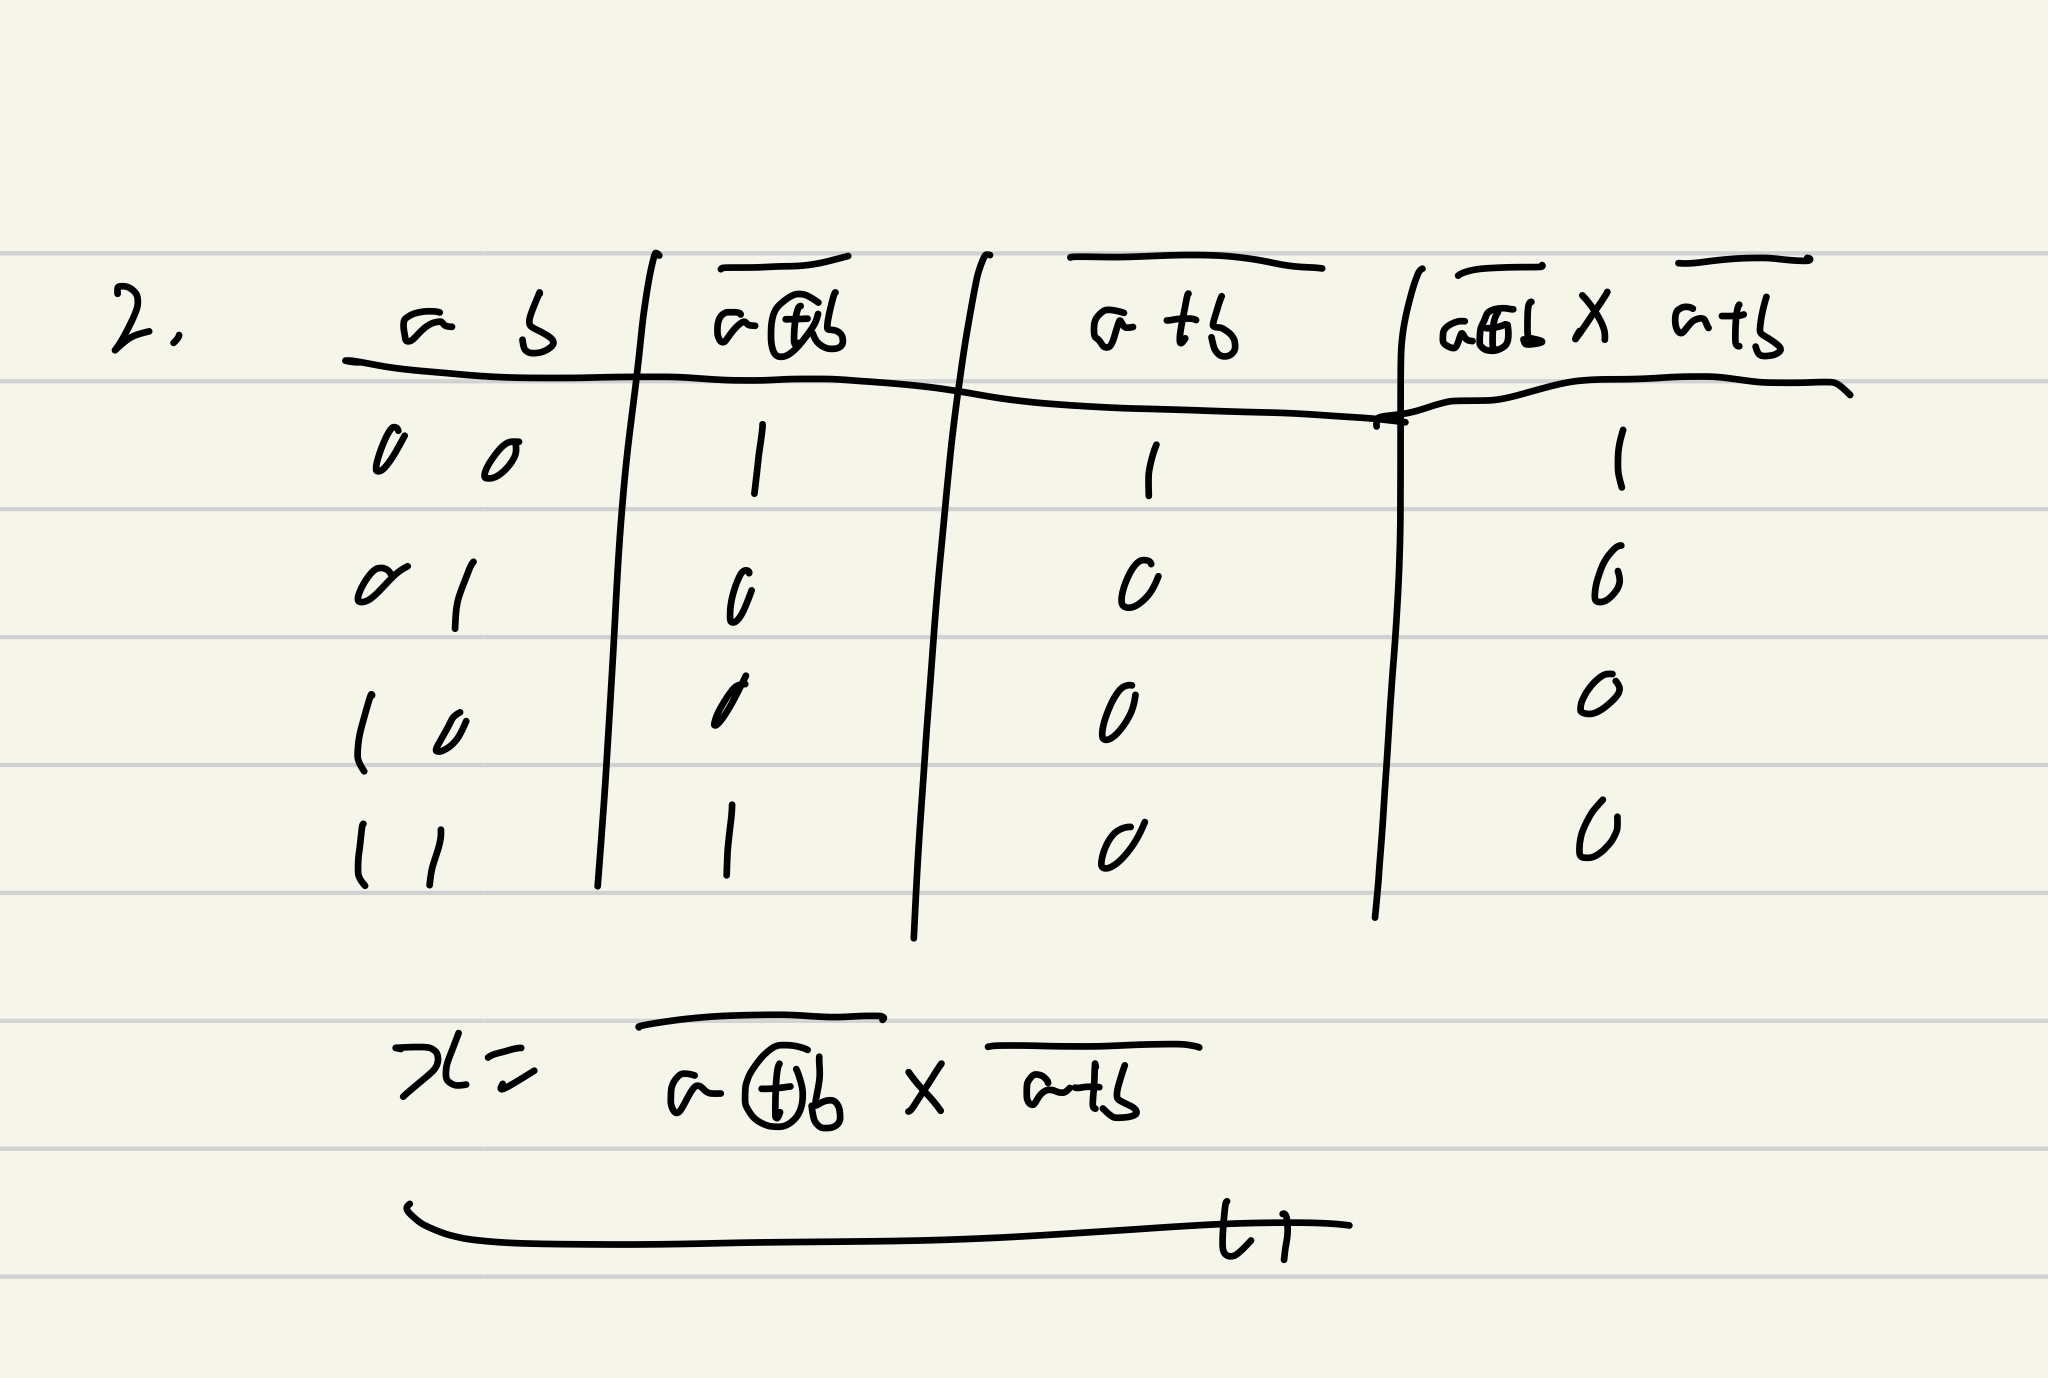 2. a b | \overline{a⊕b} | \overline{a+b} | \overline{a⊕b} × \overline{a+b}
0 0 | 1 | 1 | 1
0 1 | 0 | 0 | 0
1 0 | 0 | 0 | 0
1 1 | 1 | 0 | 0
x = \overline{a⊕b} × \overline{a+b}